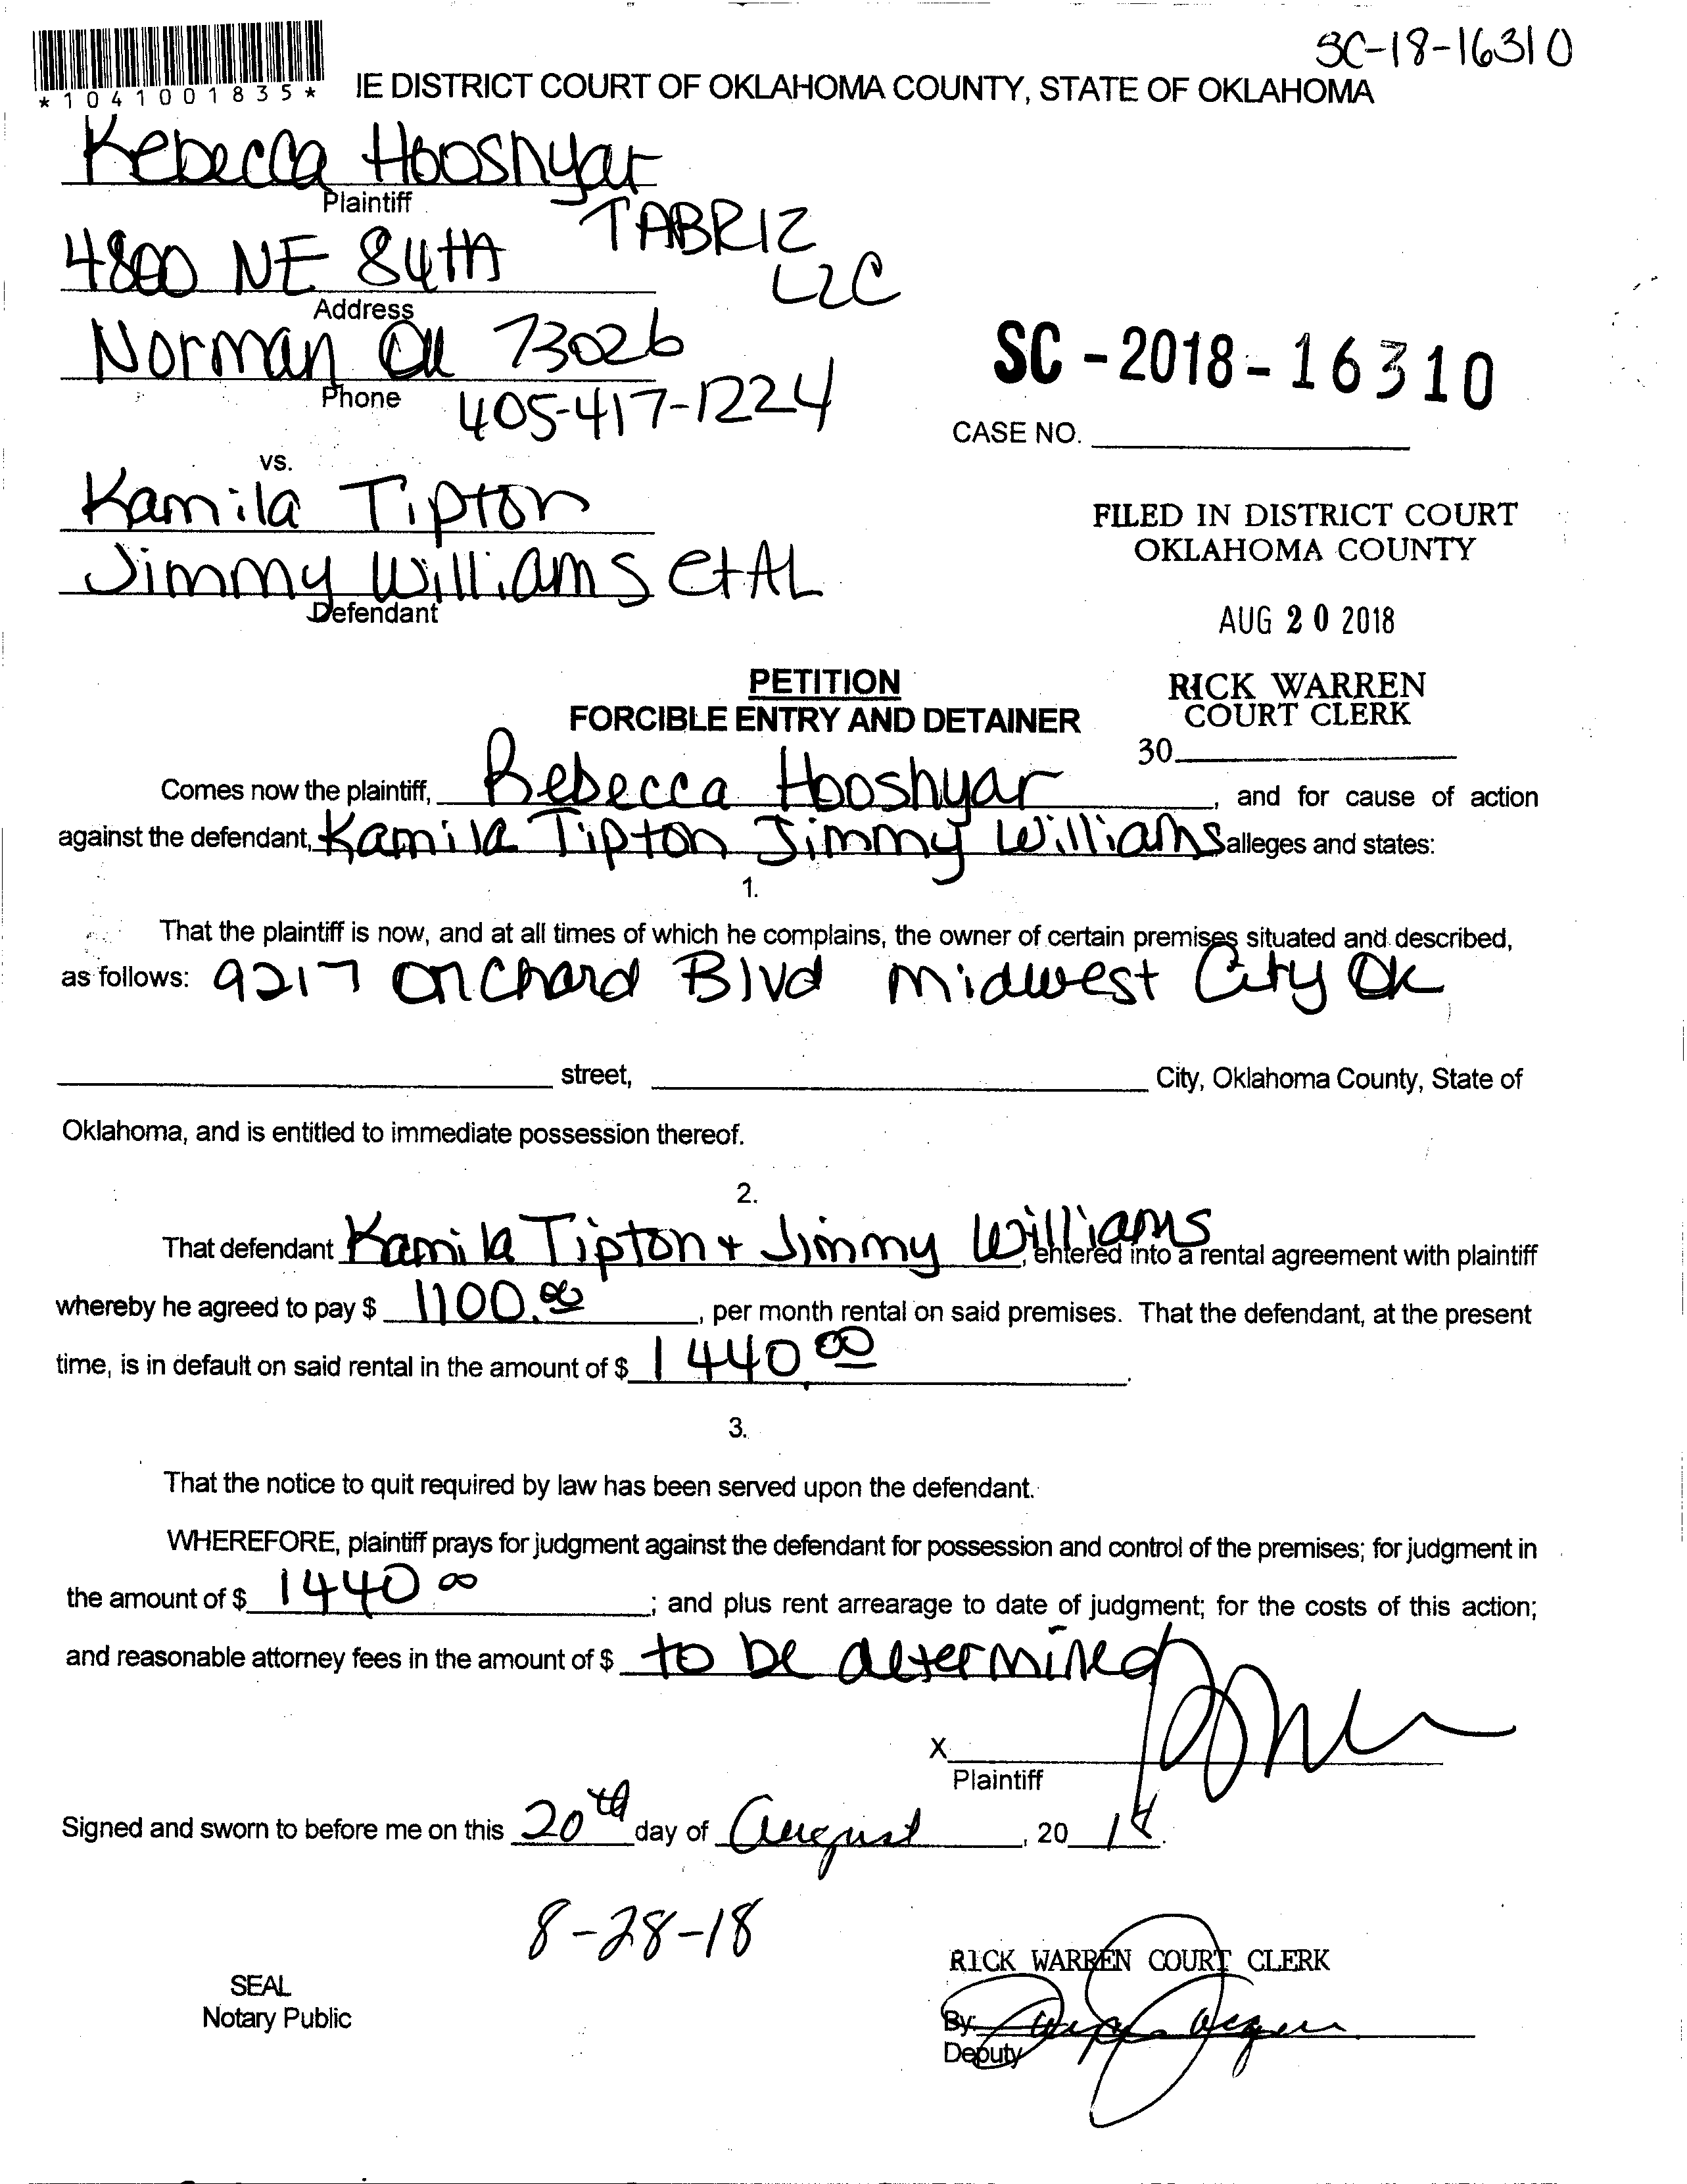 SC-18-16310
*1041001835*
IE DISTRICT COURT OF OKLAHOMA COUNTY, STATE OF OKLAHOMA
Rebecca Hooshyar
Plaintiff
TABRIZ
LLC
4800 NE 84th
Address
Norman OK 73026
Phone
405-417-1224
SC-2018-16310
CASE NO.
vs.
Kamila Tipton
Jimmy Williams et AL
Defendant
FILED IN DISTRICT COURT
OKLAHOMA COUNTY
AUG 20 2018
RICK WARREN
COURT CLERK
30
PETITION
FORCIBLE ENTRY AND DETAINER
Comes now the plaintiff, Rebecca Hooshyar, and for cause of action
against the defendant, Kamila Tipton Jimmy Williams alleges and states:
1.
That the plaintiff is now, and at all times of which he complains, the owner of certain premises situated and described,
as follows: 9217 Orchard Blvd Midwest City Ok
street, City, Oklahoma County, State of
Oklahoma, and is entitled to immediate possession thereof.
2.
That defendant Kamila Tipton + Jimmy Williams, entered into a rental agreement with plaintiff
whereby he agreed to pay $ 1100.00, per month rental on said premises. That the defendant, at the present
time, is in default on said rental in the amount of $ 1440.00.
3.
That the notice to quit required by law has been served upon the defendant.
WHEREFORE, plaintiff prays for judgment against the defendant for possession and control of the premises; for judgment in
the amount of $ 1440 00; and plus rent arrearage to date of judgment; for the costs of this action;
and reasonable attorney fees in the amount of $ to be determined
X
Plaintiff
Signed and sworn to before me on this 20th day of August, 2018.
8-28-18
SEAL
Notary Public
RICK WARREN COURT CLERK
By:
Deputy